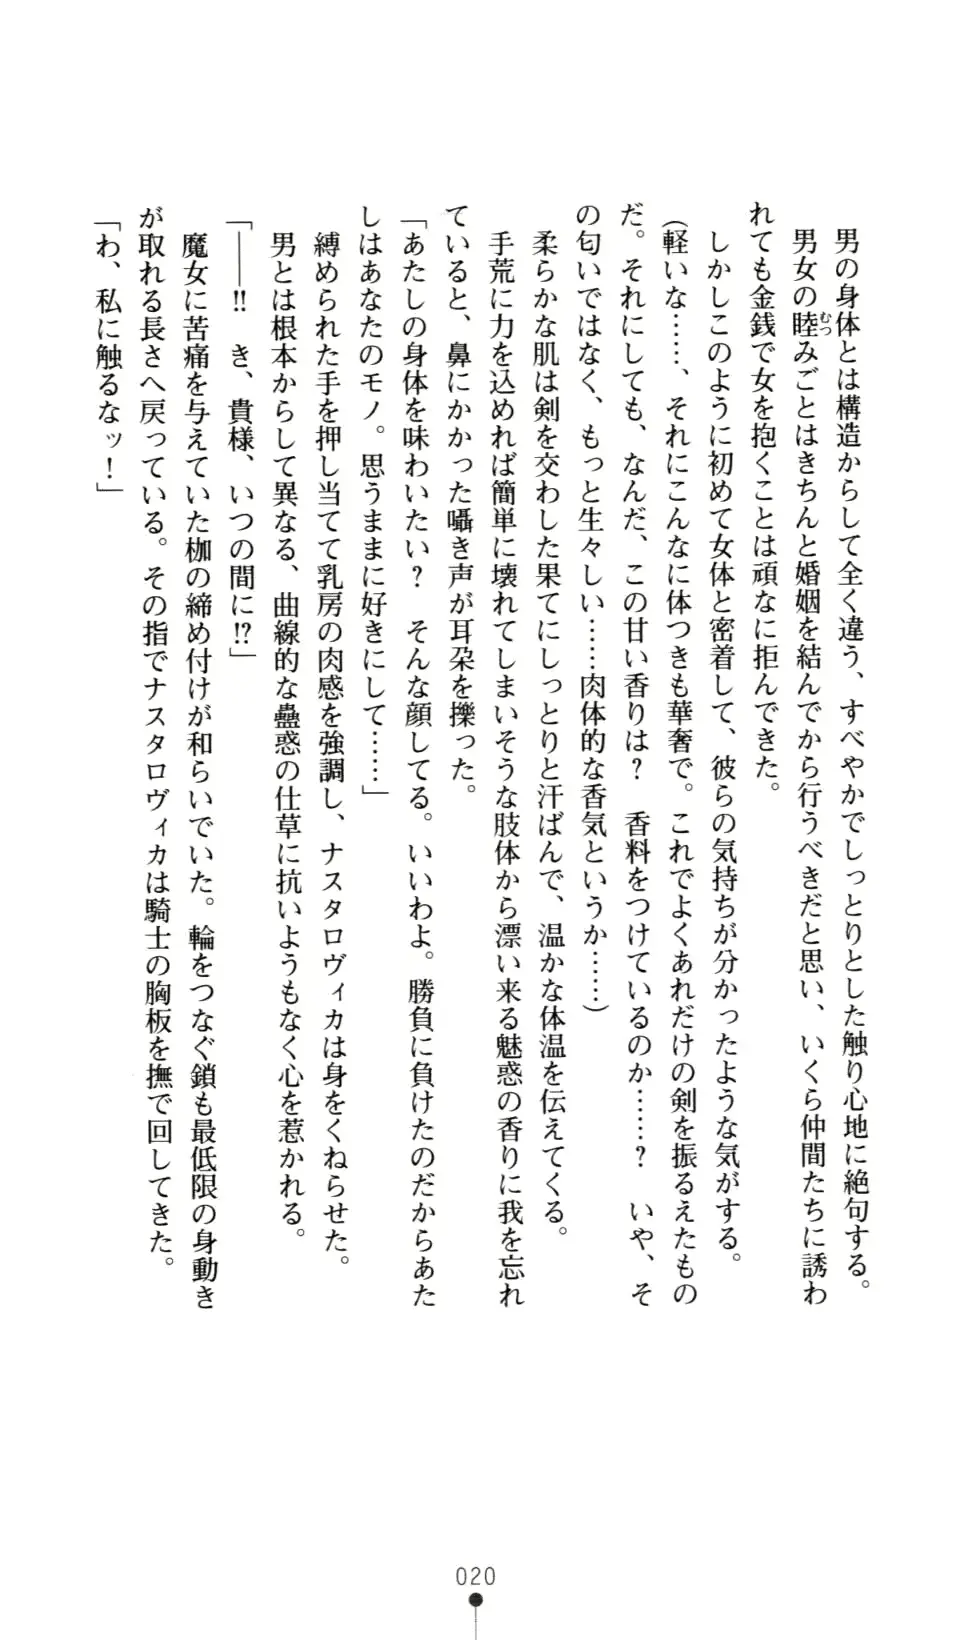 男の身体とは構造からして全く違う、すべやかでしっとりとした触り心地に絶句する。
男女の睦みごとはきちんと婚姻を結んでから行うべきだと思い、いくら仲間たちに誘わ
むつ
れても金銭で女を抱くことは頑なに拒んできた。
しかしこのように初めて女体と密着して、彼らの気持ちが分かったような気がする。
(軽いな……、それにこんなに体つきも華奢で。これでよくあれだけの剣を振るえたもの
だ。それにしても、なんだ、この甘い香りは？　香料をつけているのか……？　いや、そ
の匂いではなく、もっと生々しい……肉体的な香気というか……)
柔らかな肌は剣を交わした果てにしっとりと汗ばんで、温かな体温を伝えてくる。
手荒に力を込めれば簡単に壊れてしまいそうな肢体から漂い来る魅惑の香りに我を忘れ
ていると、鼻にかかった囁き声が耳朶を擽った。
「あたしの身体を味わいたい？　そんな顔してる。いいわよ。勝負に負けたのだからあた
しはあなたのモノ。思うままに好きにして……」
縛められた手を押し当てて乳房の肉感を強調し、ナスタロヴィカは身をくねらせた。
男とは根本からして異なる、曲線的な蠱惑の仕草に抗いようもなく心を惹かれる。
「――!!　き、貴様、いつの間に!?」
魔女に苦痛を与えていた枷の締め付けが和らいでいた。輪をつなぐ鎖も最低限の身動き
が取れる長さへ戻っている。その指でナスタロヴィカは騎士の胸板を撫で回してきた。
「わ、私に触るなッ！」
020